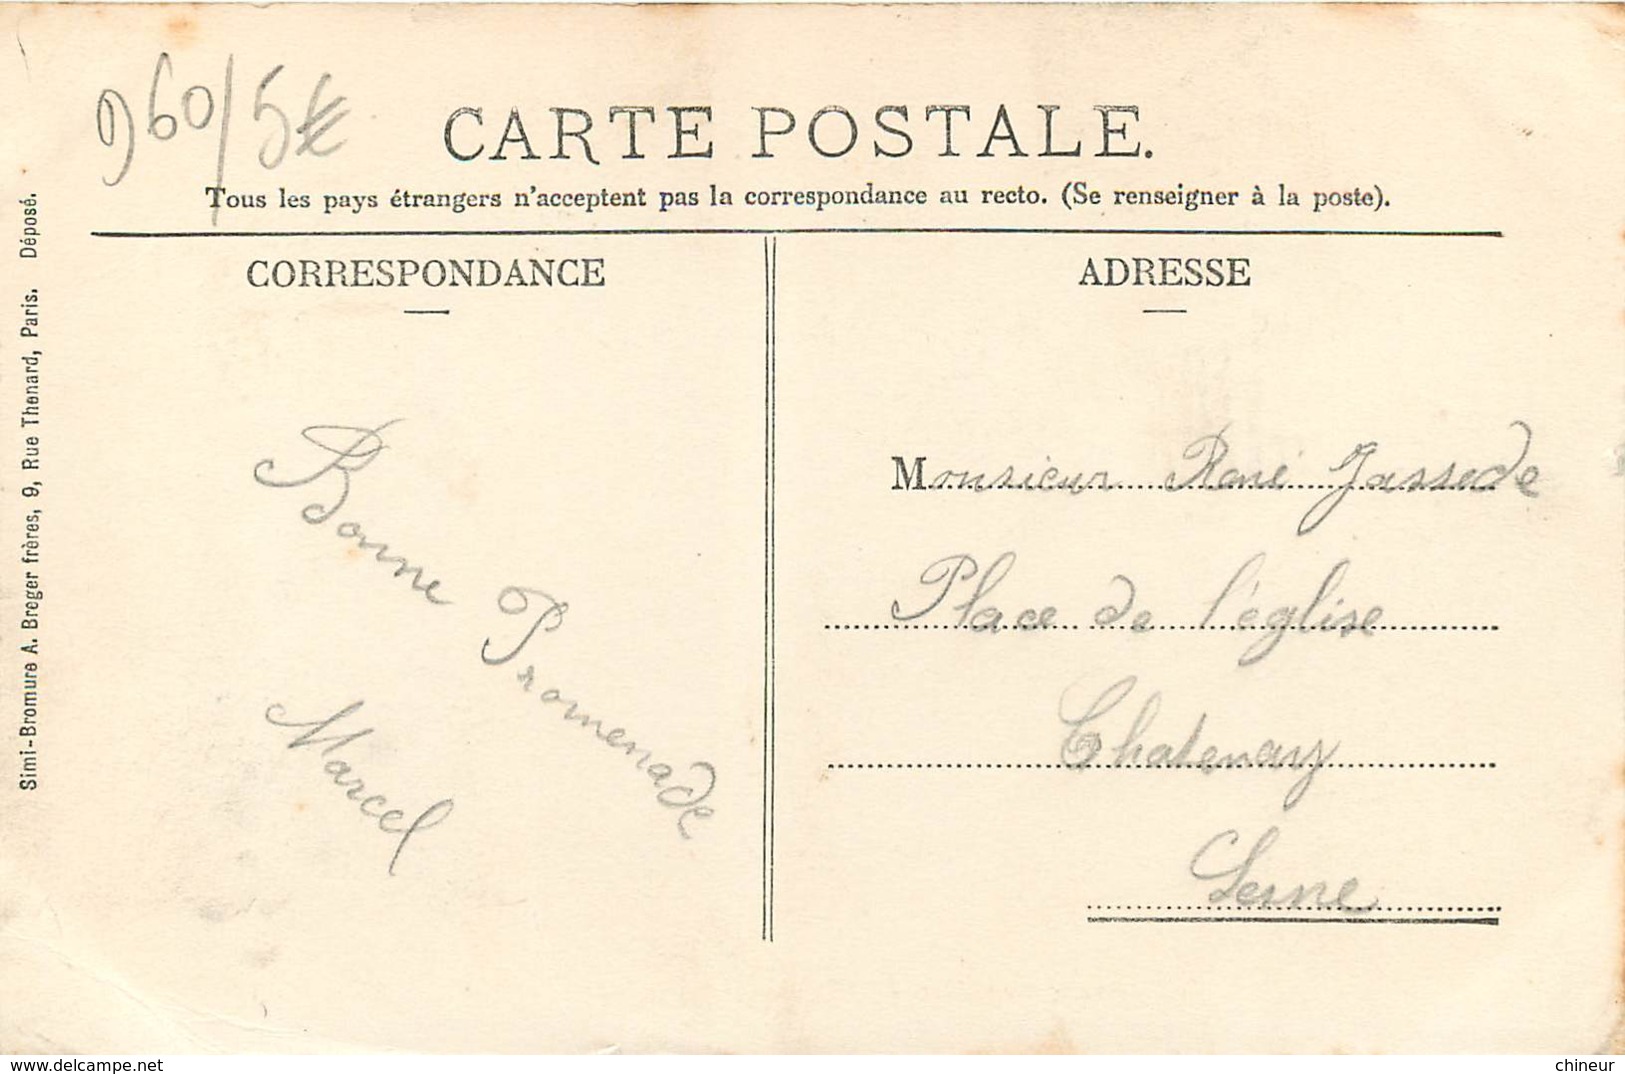 960/5€
CARTE POSTALE.
Tous les pays étrangers n'acceptent pas la correspondance au recto. (Se renseigner à la poste).
CORRESPONDANCE
Bonne Promenade
Marcel
ADRESSE
Monsieur René Jassede
Place de l'église
Chatenay
Seine
Simi-Bromure A. Breger frères, 9, Rue Thenard, Paris. Déposé.
www.delcampe.net
chineur